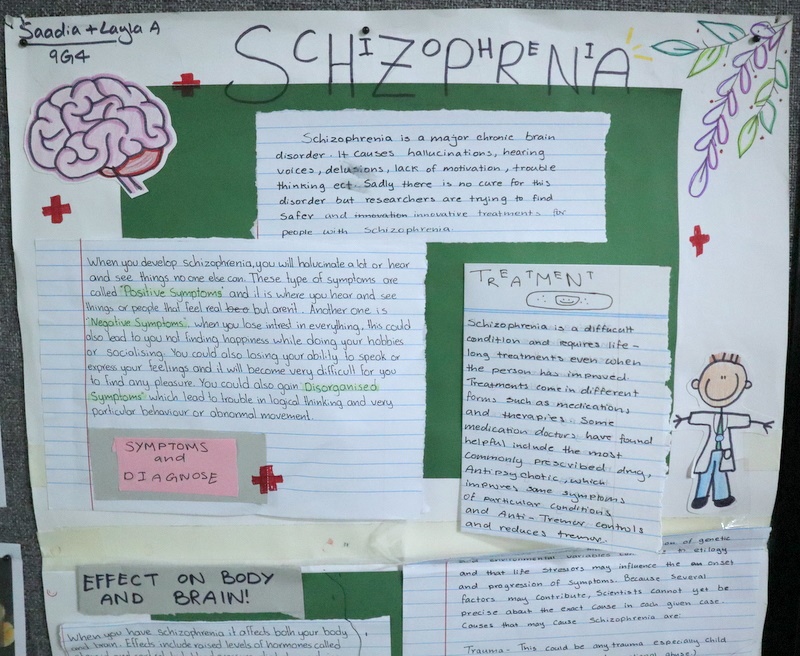 Saadia + Layla A
9G4
SCHIZOPHRENIA
Schizophrenia is a major chronic brain
disorder. It causes hallucinations, hearing
voices, delusions, lack of motivation, trouble
thinking ect. Sadly there is no cure for this
disorder but researchers are trying to find
safer and innovation innovative treatments for
people with schizophrenia.
When you develop schizophrenia, you will hallucinate a lot or hear
and see things no one else can. These type of symptoms are
called "Positive Symptoms" and it is where you hear and see
things or people that feel real but arent. Another one is
"Negative Symptoms", when you lose intrest in everything, this could
also lead to you not finding happiness while doing your hobbies
or socialising. You could also losing your ability to speak or
express your feelings and it will become very difficult for you
to find any pleasure. You could also gain "Disorganised
Symptoms" which lead to trouble in logical thinking and very
particular behaviour or abnormal movement.
SYMPTOMS
and
DIAGNOSE
TREATMENT
Schizophrenia is a diffucult
condition and requires life-
long treatments even when
the person has improved.
Treatments come in different
forms such as medications
and therapies. Some
medication doctors have found
helpful include the most
commonly prescribed drug,
Antipsychotic, which
improves some symptoms
of particular conditions
and Anti-Tremor controls
and reduces tremor.
EFFECT ON BODY
AND BRAIN!
When you have schizophrenia it affects both your body
and brain. Effects include raised levels of hormones called
of genetic
and environmental variables to etilogy
and that life stressors may influence the onset
and progression of symptoms. Because several
factors may contribute, Scientists cannot yet be
precise about the exact cause in each given case.
Causes that may cause Schizophrenia are:
Trauma - This could be any trauma especially child
abuse)